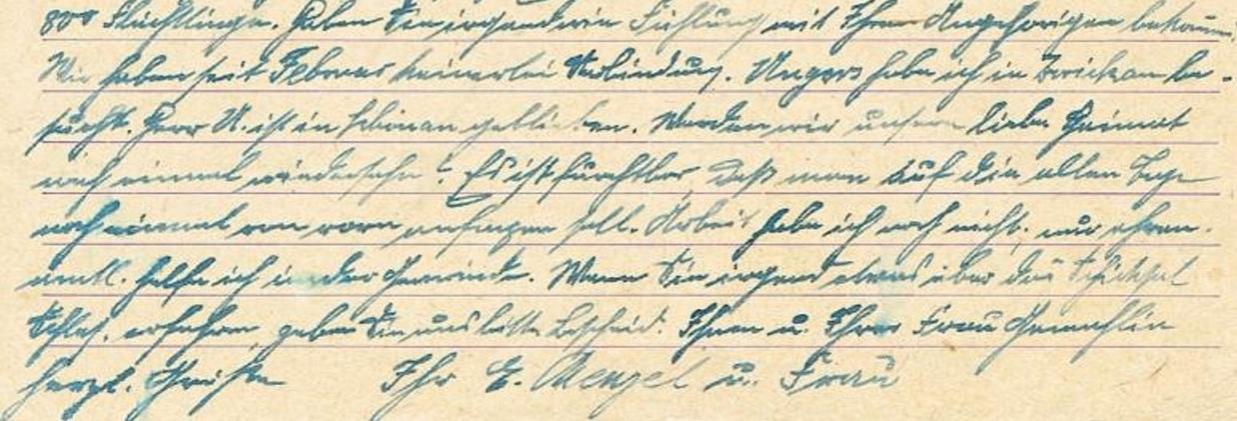 800 Flüchtlinge. Haben Sie irgendwie Fühlung mit Ihren Angehörigen bekomm.
Wir haben seit Februar keinerlei Verbindung. Ungers habe ich in Zwickau be-
sucht. Herr U. ist in Schönau geblieben. Werden wir unsere liebe Heimat
noch einmal wiedersehn? Es ist furchtbar, daß man auf die alten Tage
noch einmal von vorn anfangen soll. Arbeit habe ich noch nicht, nur ehren-
amtl. helfe ich in der Gemeinde. Wenn Sie irgend etwas über das Schicksal
Schles. erfahren, geben Sie uns bitte Bescheid. Ihnen u. Ihrer Frau Gemahlin
herzl. Grüße Ihr E. Menzel u. Frau